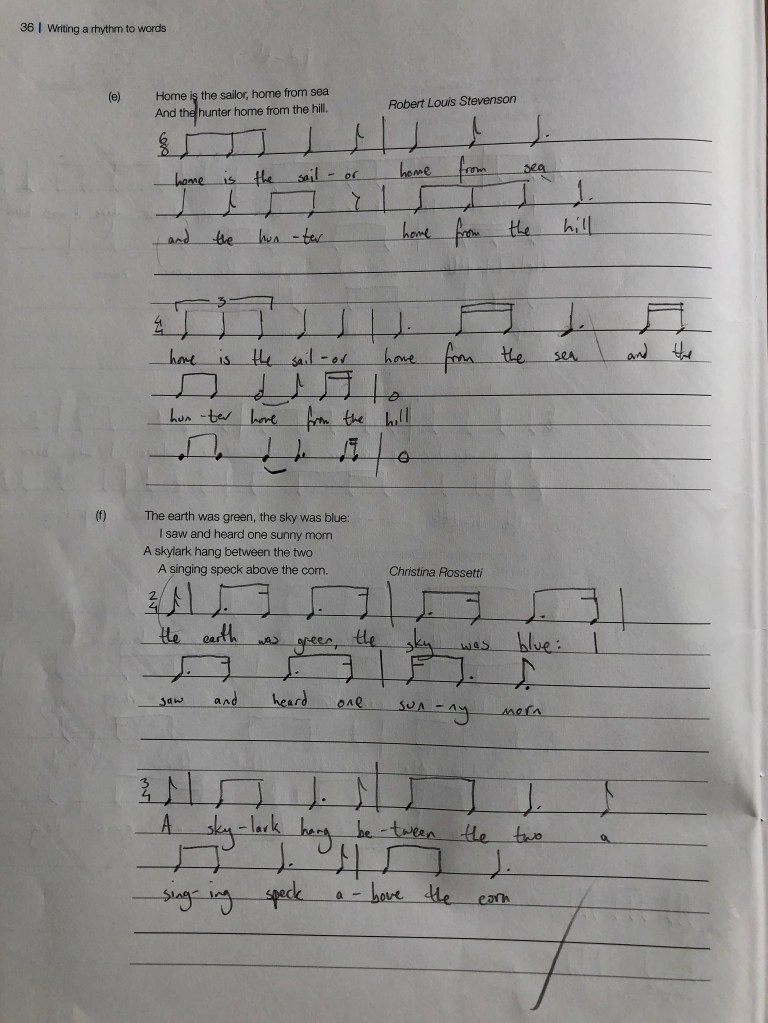 36 | Writing a rhythm to words
(e) Home is the sailor, home from sea
And the hunter home from the hill.
Robert Louis Stevenson
6
8
home is the sail - or home from sea
and the hun - ter home from the hill
3
4
4
home is the sail - or home from the sea and the
hun - ter home from the hill
(f) The earth was green, the sky was blue:
I saw and heard one sunny morn
A skylark hang between the two
A singing speck above the corn.
Christina Rossetti
2
4
the earth was green, the sky was blue: I
saw and heard one sun - ny morn
3
4
A sky - lark hang be - tween the two a
sing - ing speck a - bove the corn